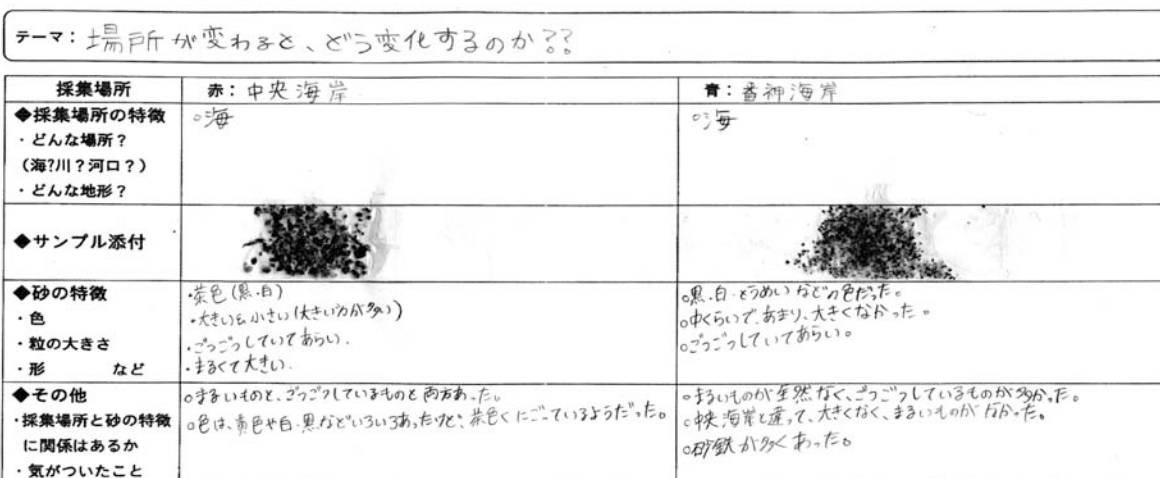 テーマ: 場所が変わると、どう変化するのか??
採集場所
赤: 中央海岸
青: 番神海岸
◆採集場所の特徴
・どんな場所?
(海?川?河口?)
・どんな地形?
○海
○海
◆サンプル添付
◆砂の特徴
・色
・粒の大きさ
・形 など
・茶色(黒.白)
・大きい&小さい(大きい方が多い)
・ごつごつしていてあらい.
・まるくて大きい.
○黒.白.とうめいなどの色だった。
○中くらいで、あまり、大きくなかった。
○ごつごつしていてあらい。
◆その他
・採集場所と砂の特徴
に関係はあるか
・気がついたこと
○まるいものと、ごつごつしているものと両方あった。
○色は、黄色や白.黒などいろいろあったけど、茶色くにごっているようだった。
○まるいものが全然なく、ごつごつしているものが多かった。
○中央海岸と違って、大きくなく、まるいものがなかった。
○砂鉄が多くあった。